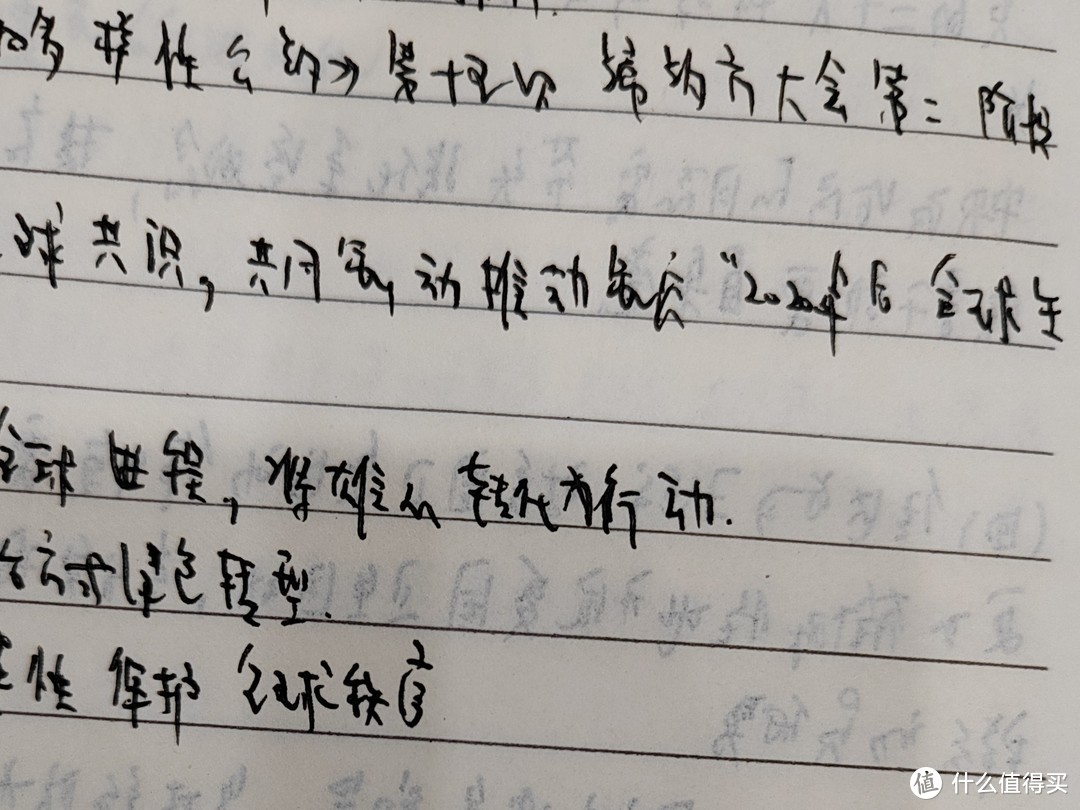 多样性公约》第十五次缔约方大会第二阶段
球共识,共同 动推动 "2020年后全球生
全球进程,将雄心转化为行动.
方式绿色转型.
性保护全球秩序
值 什么值得买